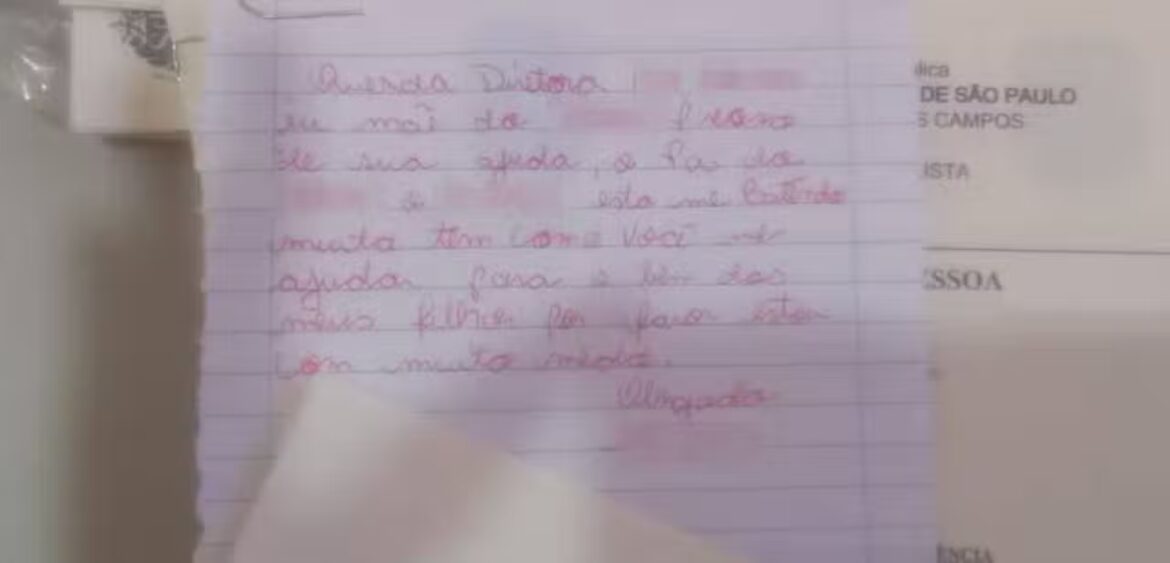 Querida Diretora
eu mãi do preciso
de sua ajuda, o Pai do
e esta me Batendo
muito tem como você me
ajudar para o bem dos
meus filhos por favor estou
com muito medo.
Obrigada
DE SÃO PAULO
S CAMPOS
ISTA
SSOA
ÊNCIA